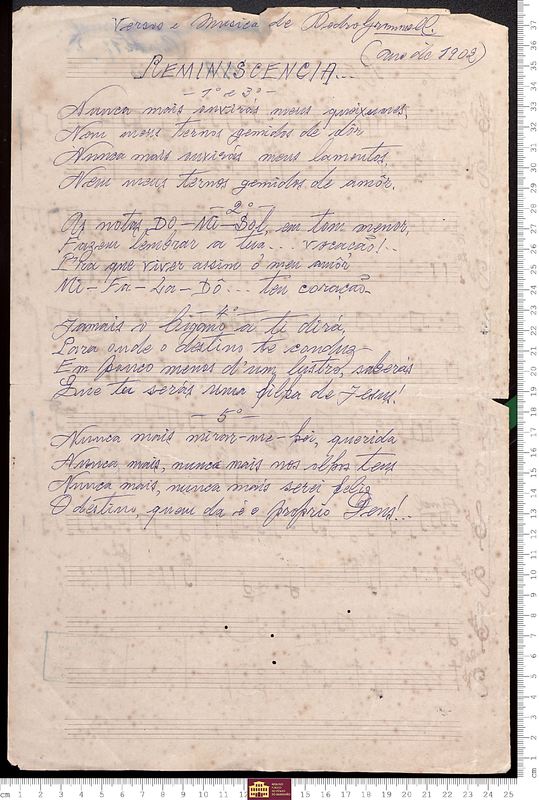 Versos e Musica de Pedro Gromwell.
(Ano de 1902)
REMINISCENCIA...
— 1º e 3º —
Nunca mais ouvirás meus queixumes,
Nem meus ternos gemidos de dôr
Nunca mais ouvirás meus lamentos
Nem meus ternos gemidos de amôr.
— 2º —
As notas DÓ-Mi-Sol, em tom menor,
Fazem lembrar a tua... vocação!..
P'ra que viver assim ó meu amôr
Mi-Fa-La-Dó... teu coração
— 4º —
Jamais o a ti dirá,
Para onde o destino te conduz
Em pouco menos d'um lustro, saberás
Que tu serás uma filha de Jesus!
— 5º —
Nunca mais mirar-me-hei, querida
Nunca mais, nunca mais nos olhos teus
Nunca mais, nunca mais serei feliz
O destino, quem dá é o proprio Deus!...